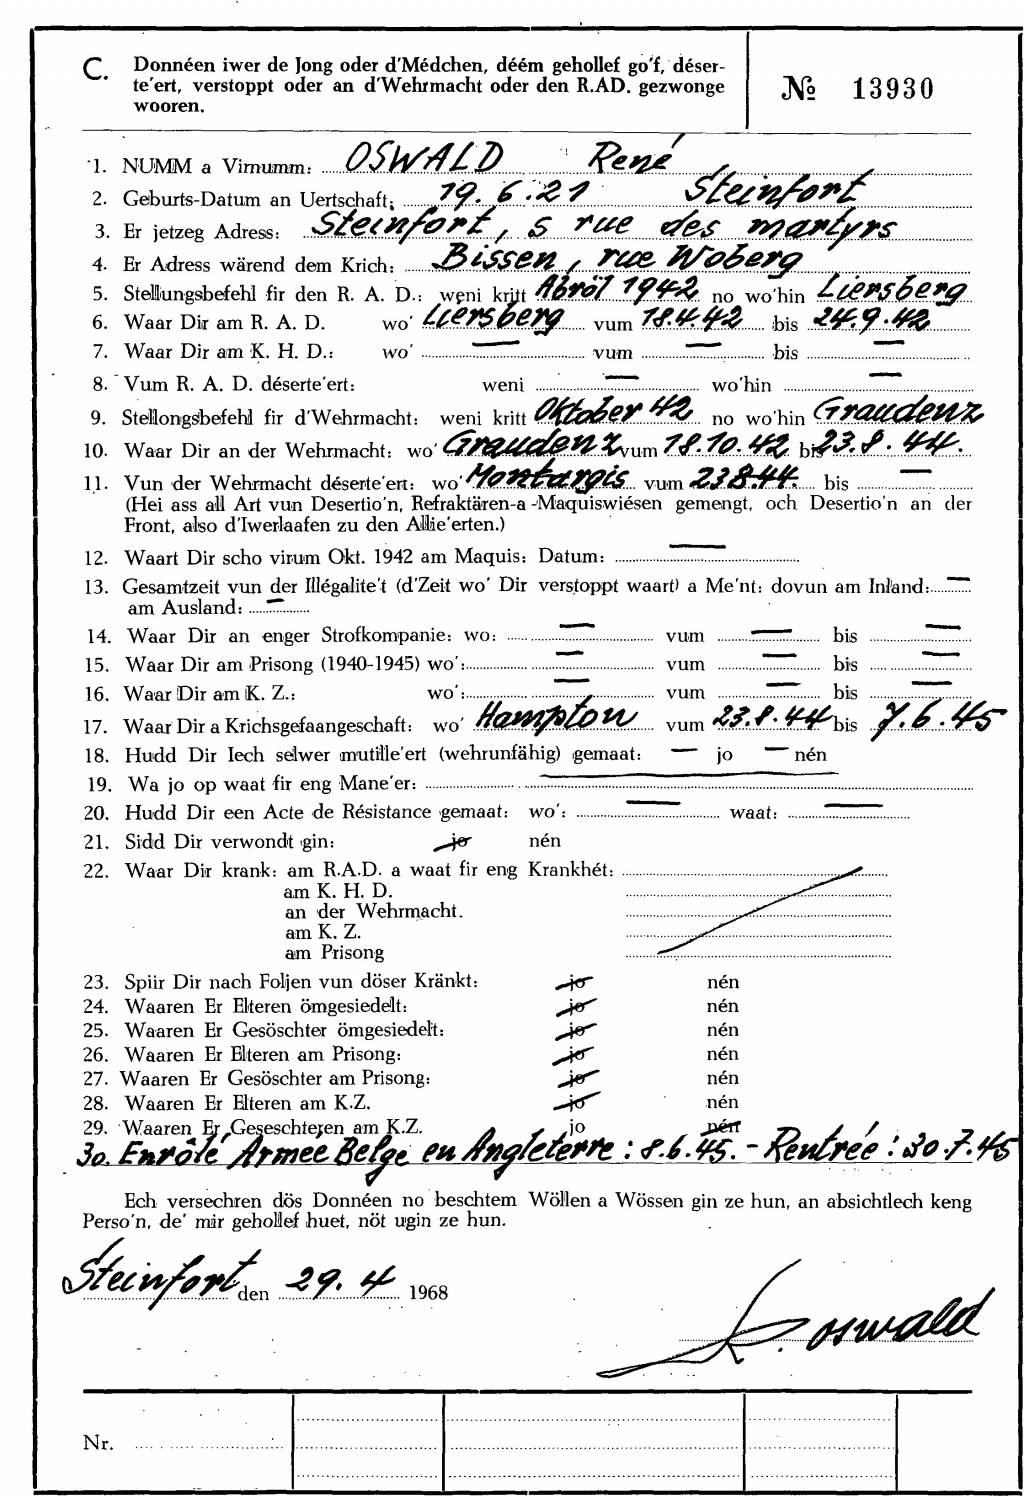 C. Donnéen iwer de Jong oder d'Médchen, déém gehollef go'f, déser-
te'ert, verstoppt oder an d'Wehrmacht oder den R.AD. gezwonge
wooren.
№ 13930
1. NUMM a Virnumm: OSWALD René
2. Geburts-Datum an Uertschaft: 19.6.21 Steinfort
3. Er jetzeg Adress: Steinfort, 5 rue des martyrs
4. Er Adress wärend dem Krich: Bissen, rue Woberg
5. Stellungsbefehl fir den R. A. D.: weni kritt Abröl 1942 no wo'hin Liersberg
6. Waar Dir am R. A. D. wo' Liersberg vum 18.4.42 bis 24.9.42
7. Waar Dir am K. H. D.: wo' — vum — bis —
8. Vum R. A. D. déserte'ert: weni — wo'hin —
9. Stellongsbefehl fir d'Wehrmacht: weni kritt Oktober 42 no wo'hin Graudenz
10. Waar Dir an der Wehrmacht: wo' Graudenz vum 18.10.42 bis 23.8.44.
11. Vun der Wehrmacht déserte'ert: wo' Montargis vum 23.8.44. bis —
(Hei ass all Art vun Desertio'n, Refraktären-a-Maquiswiésen gemengt, och Desertio'n an der
Front, also d'Iwerlaafen zu den Allie'erten.)
12. Waart Dir scho virum Okt. 1942 am Maquis: Datum: —
13. Gesamtzeit vun der Illégalite't (d'Zeit wo' Dir verstoppt waart) a Me'nt: dovun am Inland: —
am Ausland: —
14. Waar Dir an enger Strofkompanie: wo: — vum — bis —
15. Waar Dir am Prisong (1940-1945) wo': — vum — bis —
16. Waar Dir am K. Z.: wo': — vum — bis —
17. Waar Dir a Krichsgefaangeschaft: wo' Hampton vum 23.8.44 bis 7.6.45
18. Hudd Dir Iech selwer mutille'ert (wehrunfähig) gemaat: — jo — nén
19. Wa jo op waat fir eng Mane'er: —
20. Hudd Dir een Acte de Résistance gemaat: wo': — waat: —
21. Sidd Dir verwondt gin: jo nén
22. Waar Dir krank: am R.A.D. a waat fir eng Krankhét:
am K. H. D.
an der Wehrmacht.
am K. Z.
am Prisong
23. Spiir Dir nach Foljen vun döser Kränkt: jo nén
24. Waaren Er Elteren ömgesiedelt: jo nén
25. Waaren Er Gesöschter ömgesiedelt: jo nén
26. Waaren Er Elteren am Prisong: jo nén
27. Waaren Er Gesöschter am Prisong: jo nén
28. Waaren Er Elteren am K.Z. jo nén
29. Waaren Er Geseschteren am K.Z. jo nén
30. Enrôlé Armée Belge en Angleterre: 8.6.45. - Rentrée: 30.7.45
Ech versechren dös Donnéen no beschtem Wöllen a Wössen gin ze hun, an absichtlech keng
Perso'n, de' mir gehollef huet, nöt ugin ze hun.
Steinfort den 29.4 1968
R. Oswald
Nr.